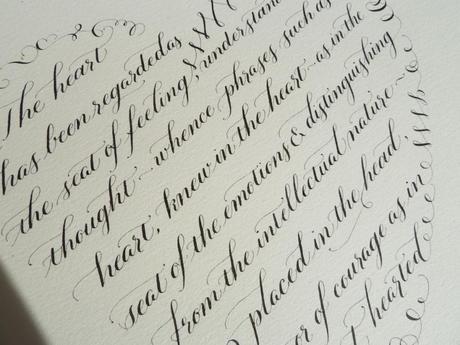 The heart
has been regarded as
the seat of feeling, understand
thought ~ whence phrases such as
heart, knew in the heart ~ as in the
seat of the emotions & distinguishing
from the intellectual nature ~
placed in the head.
or of courage as in
t hearted